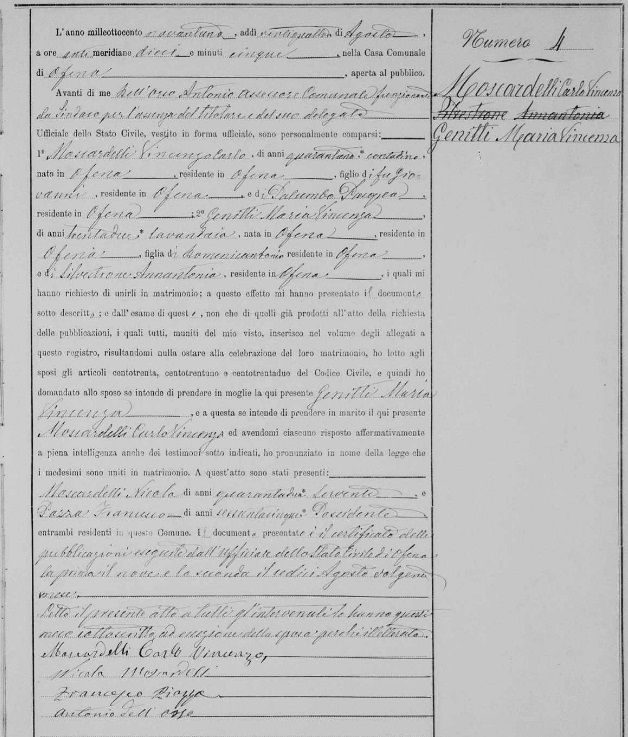 L'anno milleottocento novantuno, addì ventiquattro di Agosto,
a ore anti meridiane dieci e minuti cinque, nella Casa Comunale
di Ofena, aperta al pubblico.
Avanti di me Dell'Orso Antonio Assessore Comunale funzionante
da Sindaco per l'assenza del titolare e del suo delegato
Uffiziale dello Stato Civile, vestito in forma uffiziale, sono personalmente comparsi:
1º Moscardelli Vincenzo Carlo, di anni quarantuno contadino
nato in Ofena, residente in Ofena, figlio di fu Gio-
vanni, residente in Ofena e di Palumbo
residente in Ofena; 2º Genitti Maria Vincenza,
di anni trentadue lavandaia, nata in Ofena, residente in
Ofena, figlia di Domenicantonio residente in Ofena
e di Silvestrone Annantonia, residente in Ofena, i quali mi
hanno richiesto di unirli in matrimonio; a questo effetto mi hanno presentato il documento
sotto descritto; e dall'esame di questo, non che di quelli già prodotti all'atto della richiesta
delle pubblicazioni, i quali tutti, muniti del mio visto, inserisco nel volume degli allegati a
questo registro, risultandomi nulla ostare alla celebrazione del loro matrimonio, ho letto agli
sposi gli articoli centotrenta, centotrentuno e centotrentadue del Codice Civile, e quindi ho
domandato allo sposo se intende di prendere in moglie la qui presente Genitti Maria
Vincenza, e a questa se intende di prendere in marito il qui presente
Moscardelli Carlo Vincenzo ed avendomi ciascuno risposto affermativamente
a piena intelligenza anche dei testimoni sotto indicati, ho pronunziato in nome della legge che
i medesimi sono uniti in matrimonio. A quest'atto sono stati presenti:
Moscardelli Nicola di anni quarantadue serviente e
Piazza Francesco di anni sessantacinque Possidente
entrambi residenti in questo Comune. Il documento presentato è il certificato delle
pubblicazioni eseguite dall'Uffiziale dello Stato Civile di Ofena
la prima il nove e la seconda il sedici Agosto volgente
mese.
Letto il presente atto a tutti gl'intervenuti lo hanno questi
meco sottoscritto ad eccezione della sposa perchè illetterata.
Moscardelli Carlo Vincenzo,
Nicola Moscardelli
Francesco Piazza
Antonio dell'Orso
Numero 4
Moscardelli Carlo Vincenzo
Silvestrone Annantonia
Genitti Maria Vincenza